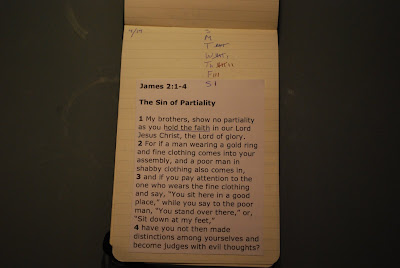 4/14
S
M
T
W
T
F
S
James 2:1-4
The Sin of Partiality
1 My brothers, show no partiality
as you hold the faith in our Lord
Jesus Christ, the Lord of glory.
2 For if a man wearing a gold ring
and fine clothing comes into your
assembly, and a poor man in
shabby clothing also comes in,
3 and if you pay attention to the
one who wears the fine clothing
and say, “You sit here in a good
place,” while you say to the poor
man, “You stand over there,” or,
“Sit down at my feet,”
4 have you not then made
distinctions among yourselves and
become judges with evil thoughts?